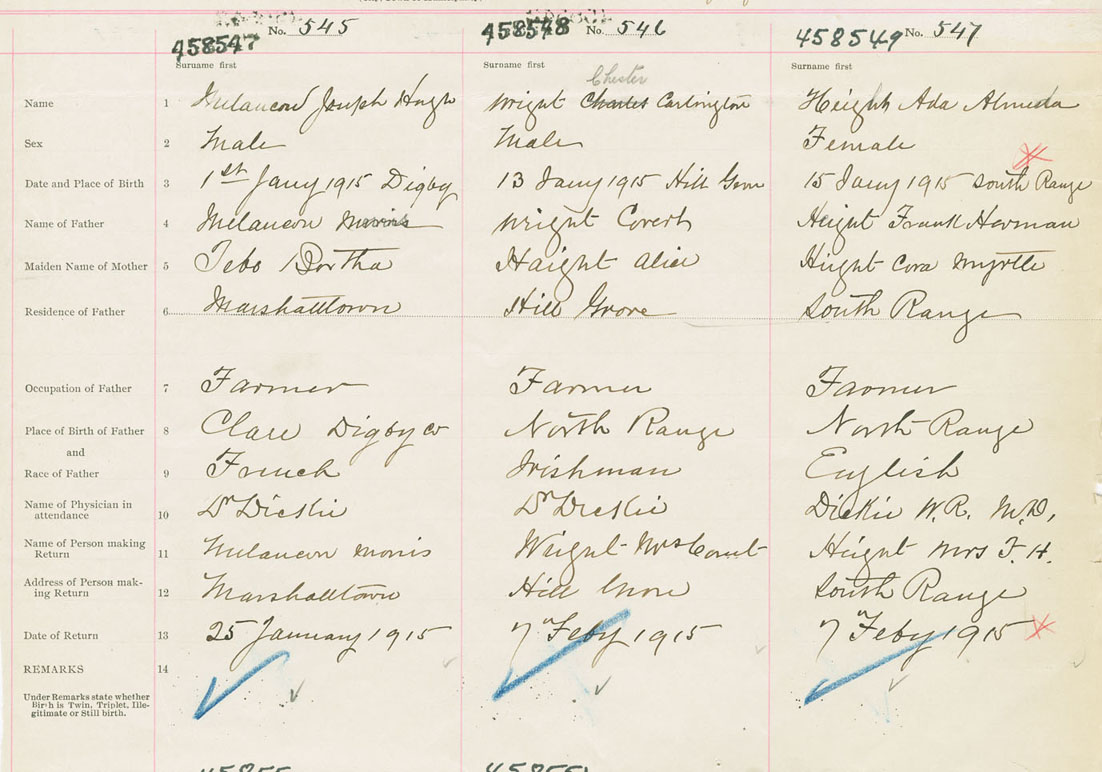 458547 No. 545 458548 No. 546 458549 No. 547
Surname first Surname first Surname first
Chester
Name 1 Melancon Joseph Hugh Wright Charles Carlington Height Ada Almeda
Sex 2 Male Male Female
Date and Place of Birth 3 1st Jany 1915 Digby 13 Jany 1915 Hill Grove 15 Jany 1915 South Range
Name of Father 4 Melancon Morris Wright Covert Height Frank Herman
Maiden Name of Mother 5 Tebo Bertha Haight Alice Hight Cora Myrtle
Residence of Father 6 Marshalltown Hill Grove South Range
Occupation of Father 7 Farmer Farmer Farmer
Place of Birth of Father 8 Clare Digby co North Range North Range
and
Race of Father 9 French Irishman English
Name of Physician in
attendance 10 Dr Dickie Dr Dickie Dickie W.R. M.D.
Name of Person making
Return 11 Melancon Morris Wright Mrs Covert Height Mrs F. H.
Address of Person mak-
ing Return 12 Marshalltown Hill Grove South Range
Date of Return 13 25 January 1915 7th Feby 1915 7th Feby 1915
REMARKS 14
Under Remarks state whether
Birth is Twin, Triplet, Ille-
gitimate or Still birth.